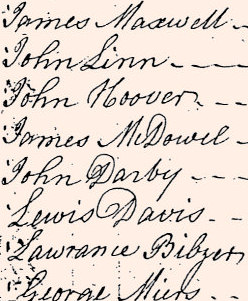 James Maxwell
John Linn
John Hoover
James McDowel
John Darby
Lewis Davis
Lawrance Bibzer
George Miers